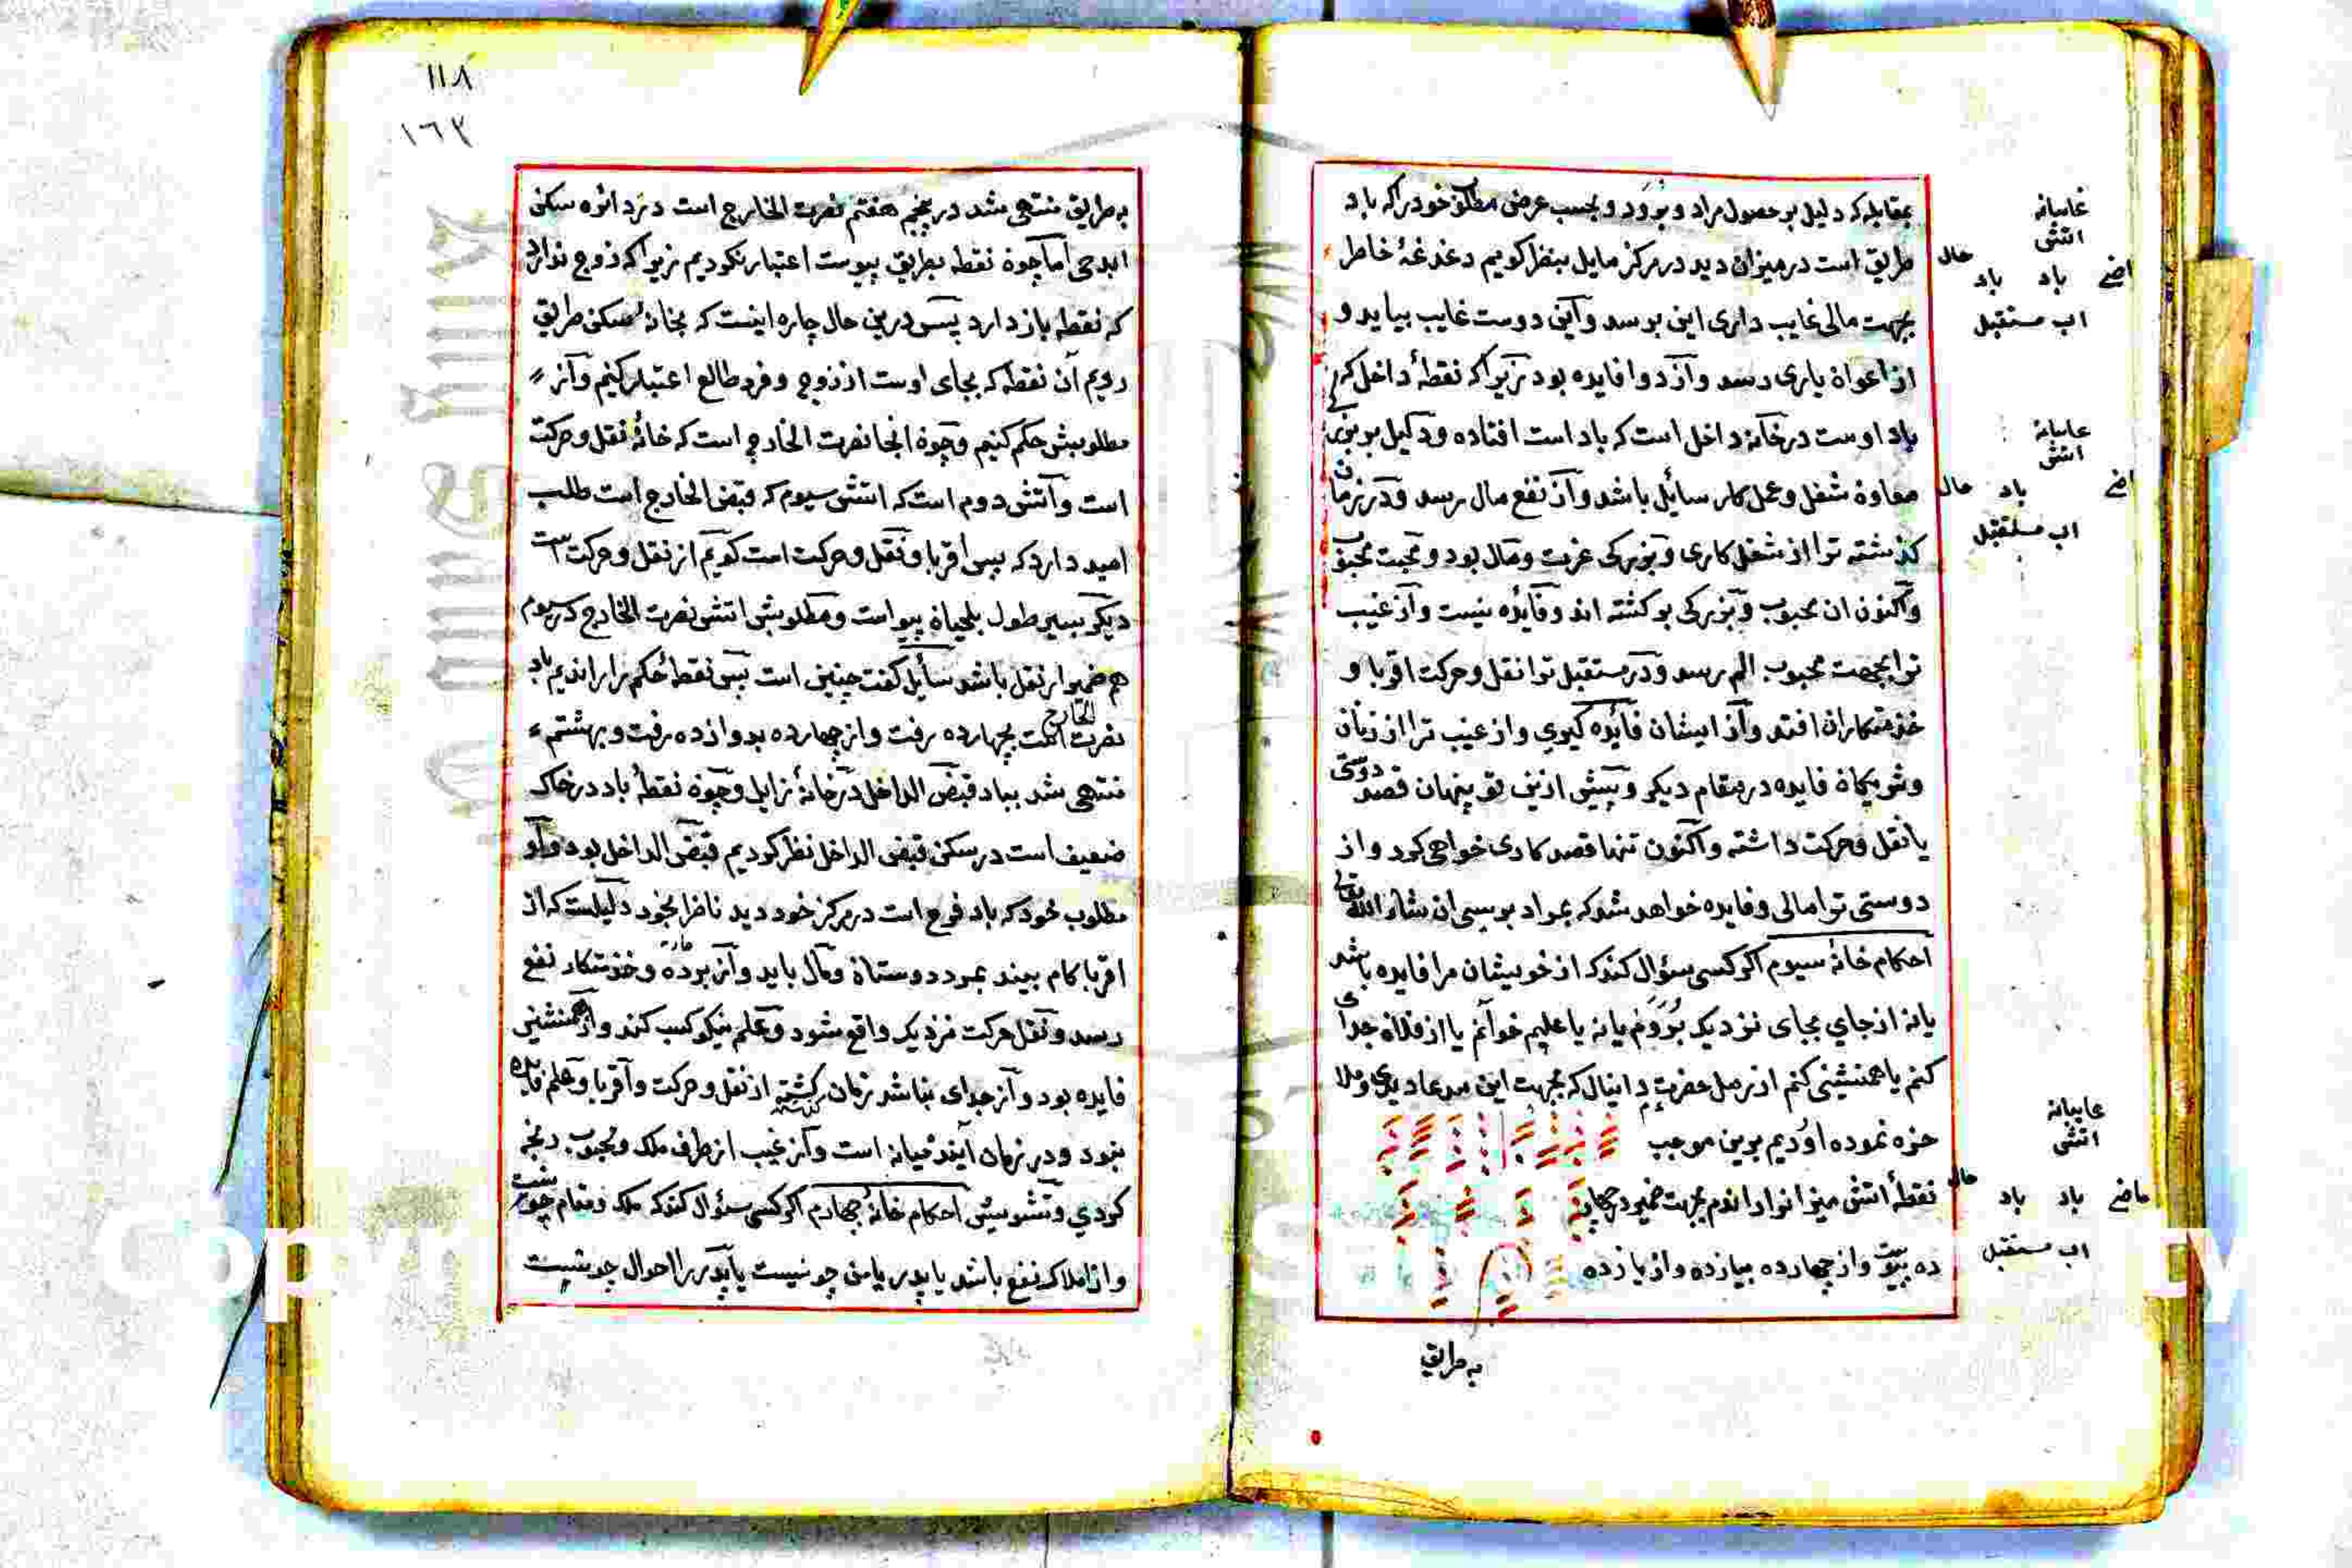 بمقابله که دلیل بر حصول مراد و بُرَوَد و بحسب عرض مطلق خود را که باد
طریق است در میزان دید در مرکز مایل بنظر کویم دغدغهٔ خاطر
بجهت مالی غایب داری این برسد و این دوست غایب بیاید و
از اعوان یاری رسد و از دوا فایده بود زیرا که نقطهٔ داخل که
باد اوست در خانهٔ داخل است که باد است افتاده و دلیل بر
معاون شغل و عمل کار سائل باشد و از نفع مال رسد و در زمان
کذشته ترا از شغل کاری و بزرکی عزت و مال بود و محبت محبوب
و اکنون ان محبوب و بزرکی بر کشته اند و فایده نیست و از غیب
ترا بجهت محبوب الم رسد و در مستقبل ترا نقل و حرکت اقربا و
خذمتکاران افتد و از ایشان فائده کیری و از غیب ترا از زنان
و شریکان فایده در مقام دیکر و پیش ازین تو پنهان قصد دوستی
یا نقل و حرکت داشته و اکنون تنها قصد کاری خواهی کرد و از
دوستی ترا مالی و فایده خواهد شد که بمراد برسی ان شاء الله تعالی
احکام خانهٔ سیوم اکر کسی سؤال کند که از خویشان مرا فایده باشد
یا نه از جای بجای نزدیک بُرَوَم یا نه یا علیم خوانم یا از فلان جدای
کنم یا همنشینی کنم از رمل حضرت دانیال که بجهت این مدعا دیدی و ملا
حزه نموده اوردیم برین موجب
نقطهٔ اتشی میزا نرا راندم بجهت ضمیر در چهار
ده پیوست و از چهارده بیازده و از یازده
به طریق
غایبانه
اتشی
حال
باد
باد
اب مستقبل
غایبانه
اتشی
حال
باد
اب مستقبل
غایبانه
اتشی
حال
باد
باد
ماضی
اب مستقبل
۱۱۸
۱۶۳
به طریق منتهی شد در پنجم هفتم نصرت الخارج است در دائره سکن
ابدحی اما چون نقطه بطریق پیوست اعتبار نکردیم زیرا که زوج ندارد
که نقطه باز دارد پس درین حال چاره اینست که بخانهٔ سکن طریق
رویم آن نقطه که بجای اوست از زوج و فرد طالع اعتبار کنیم و از
مطلوبش حکم کنیم و چون انجا نصرت الخارج است که خانهٔ نقل و حرکت
است و آتش دوم است که اتشی سیوم که قبض الخارج است طلب
امید دارد که پس اقربا و نقل و حرکت است کویم از نقل و حرکت است
دیکر بسیر طول بلحیان پیوست و مطلوبش اتشی نصرت الخارج در سیوم
هم ضمیر از نقل باشد سائل کفت چنین است پس نقطهٔ حکم را راندیم باد
نصرت الخارج است بچهارده رفت و از چهارده بدوازده رفت و بهشتم
منتهی شد بباد قبض الداخل در خانهٔ زایل و چون نقطهٔ باد در خاک
ضعیف است در سکن قبض الداخل نظر کردیم قبض الداخل بود و او
مطلوب خود که باد فرح است در مرکز خود دید ناظر بخود دلیلست که از
اقربا کام بیند بمدد دوستان و مال یابد و از برده و خذمتکار نفع
رسد و نقل حرکت نزدیک واقع شود و علم نیکو کسب کند و از همنشینی
فایده بود و از جدای نباشد زمان کذشته از نقل و حرکت و اقربا و علم فایده
نبود و در زمان آینده میانه است و از غیب از طرف ملک و محبوب رنجه
کردی و تشویش احکام خانهٔ چهارم اکر کسی سؤال کند که ملک و مقام چون است
و از املاک نفع باشد یا پدر یا من چونیست یا پدر را احوال چونیست